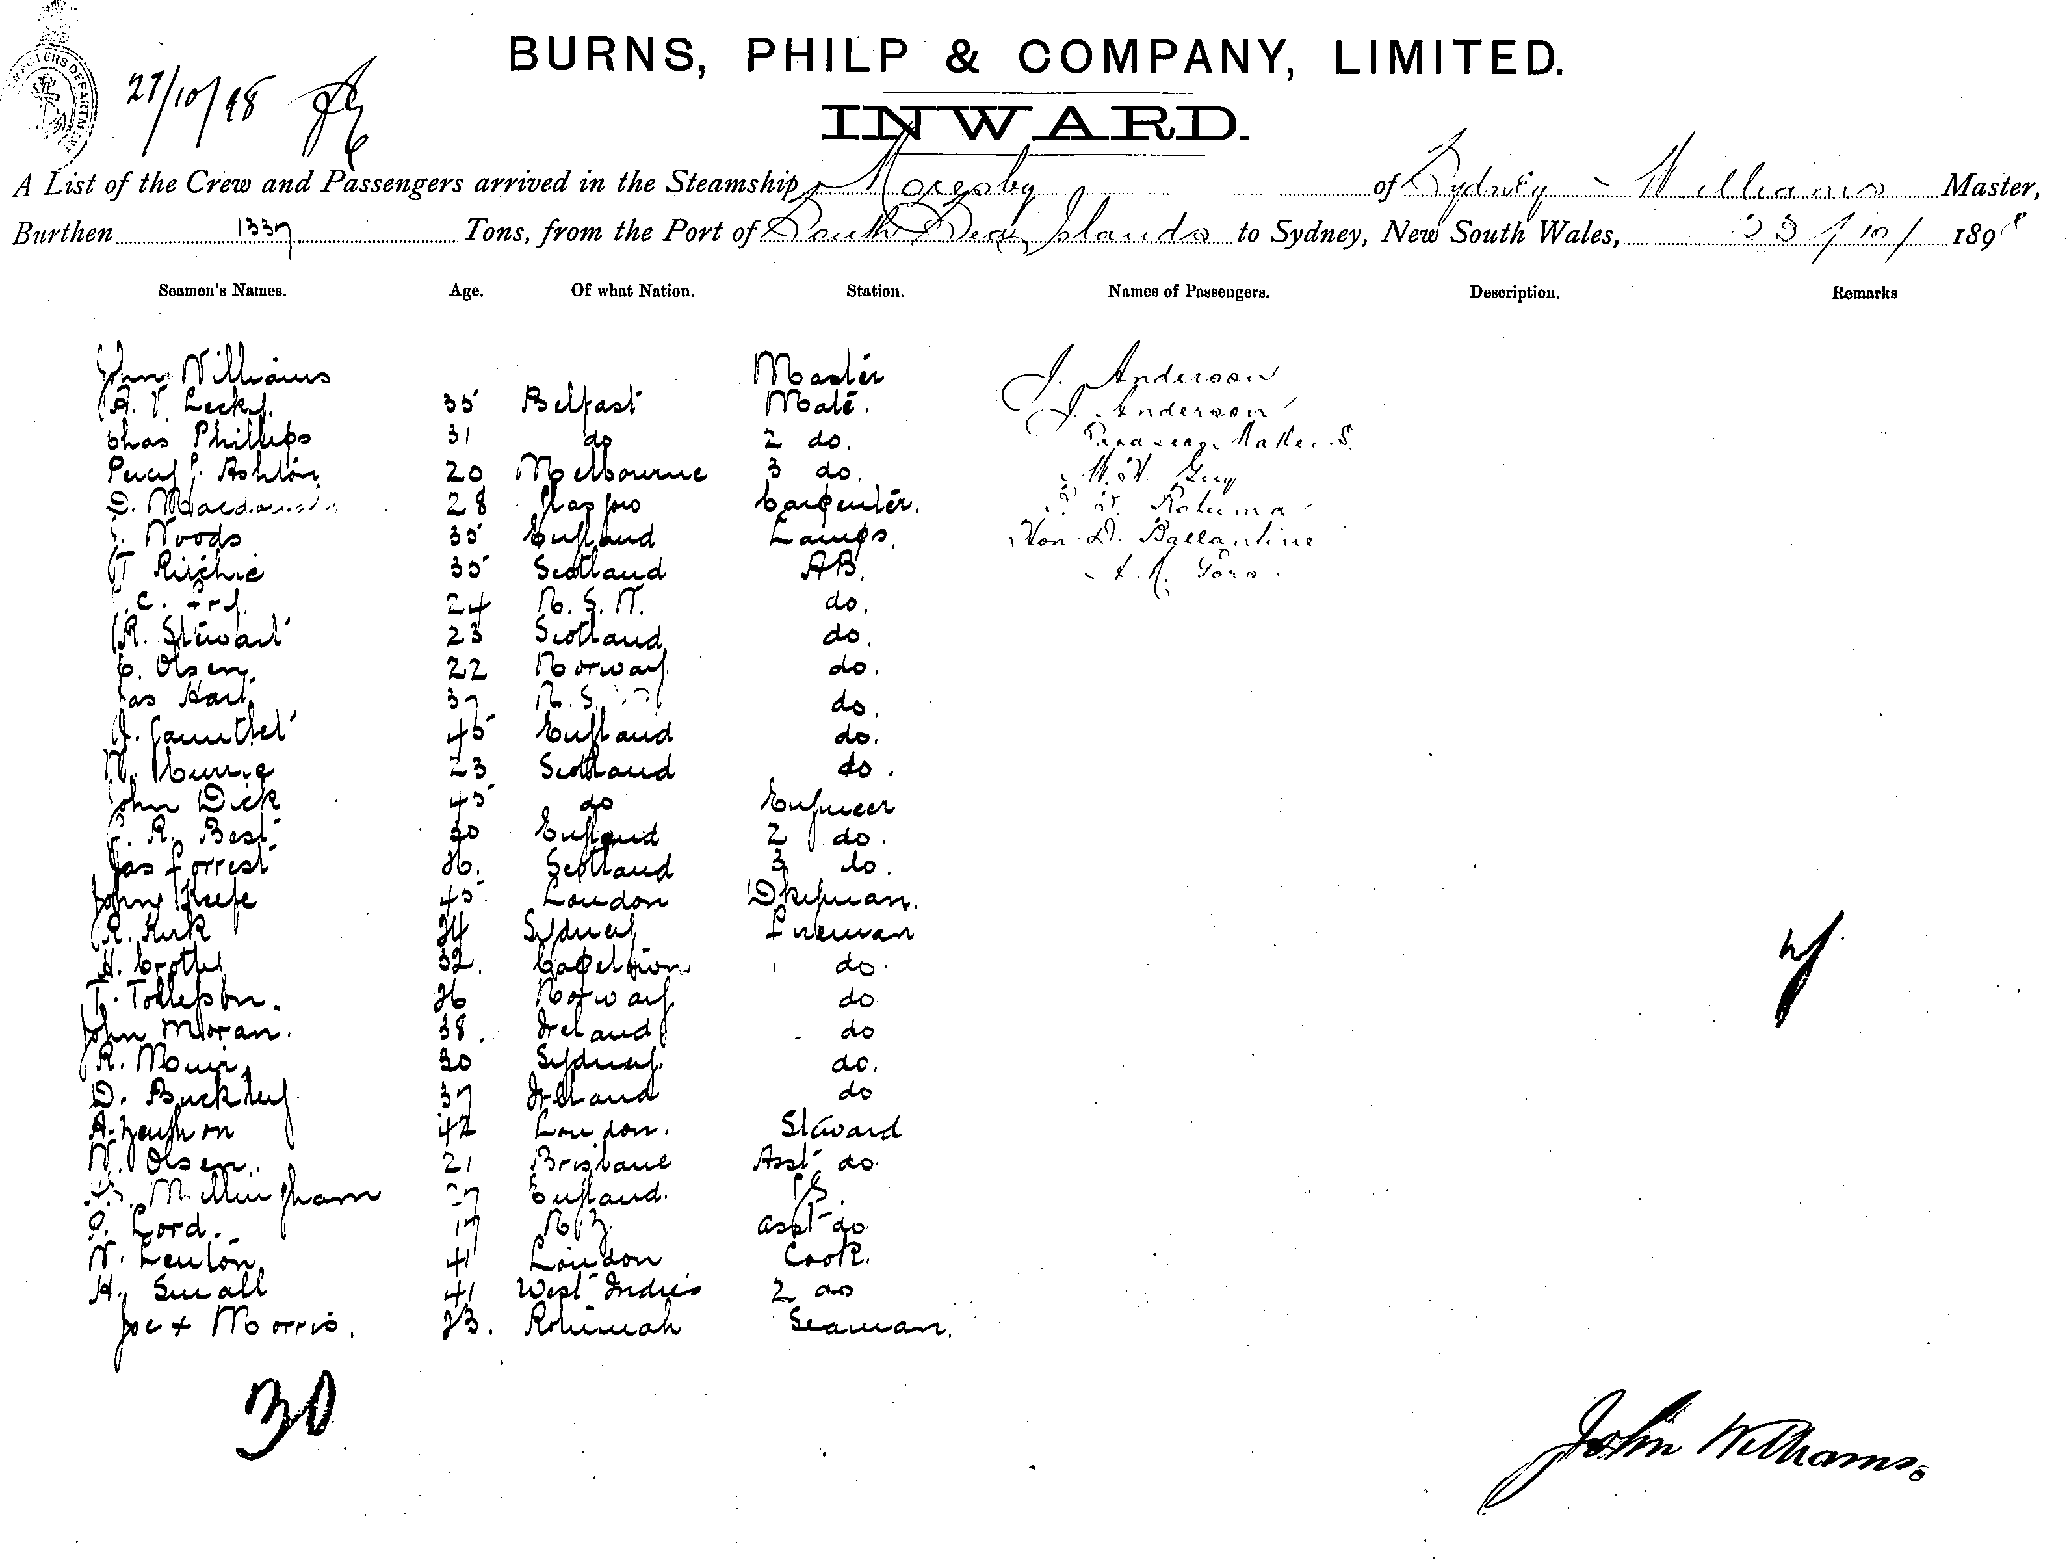 BURNS, PHILP & COMPANY, LIMITED.
27/10/98
INWARD.
A List of the Crew and Passengers arrived in the Steamship Moresby of Sydney - Williams Master,
Burthen 1337 Tons, from the Port of South Sea Islands to Sydney, New South Wales, 23/10/ 1898
Seamen's Names. Age. Of what Nation. Station. Names of Passengers. Description. Remarks
John Williams Master J. Anderson
A. T. Lecky. 35 Belfast Mate. J. Anderson
Chas Phillips 31 do 2 do.
Percy J. Ashton 20 Melbourne 3 do.
D. Macdonald 28 Glasgow Carpenter.
Woods 35 England Lamps.
Ritchie 35 Scotland AB. Hon D. Ballantine
C. Fry. 24 N. S. W. do.
R. Stewart 23 Scotland do.
C. Olsen. 22 Norway do.
Jas Hart 37 N. S. W. do.
J. Gauntlet 45 England do.
W. Currie 23 Scotland do.
John Dick 45 do Engineer
R. Best 30 England 2 do.
Jas Forrest 26. Scotland 3 do.
John Keefe 45 London Dkeyman.
R. Kirk 24 Sydney Fireman
32. Capetown do.
T. Tollefson. 26 Norway do
John Moran. 38. Ireland do
R. Muir. 30 Sydney. do.
D. Buckley 37 Ireland do
42 London. Steward
W. Olsen. 21 Brisbane Asst do.
Millingham 27 England. PS.
Lord. 17 N Z. asst do
W. Lenton 41 London Cook.
H. Small 41 West Indies 2 do
Joe + Morris. 23. Rotumah Seaman.
7
30
John Williams.